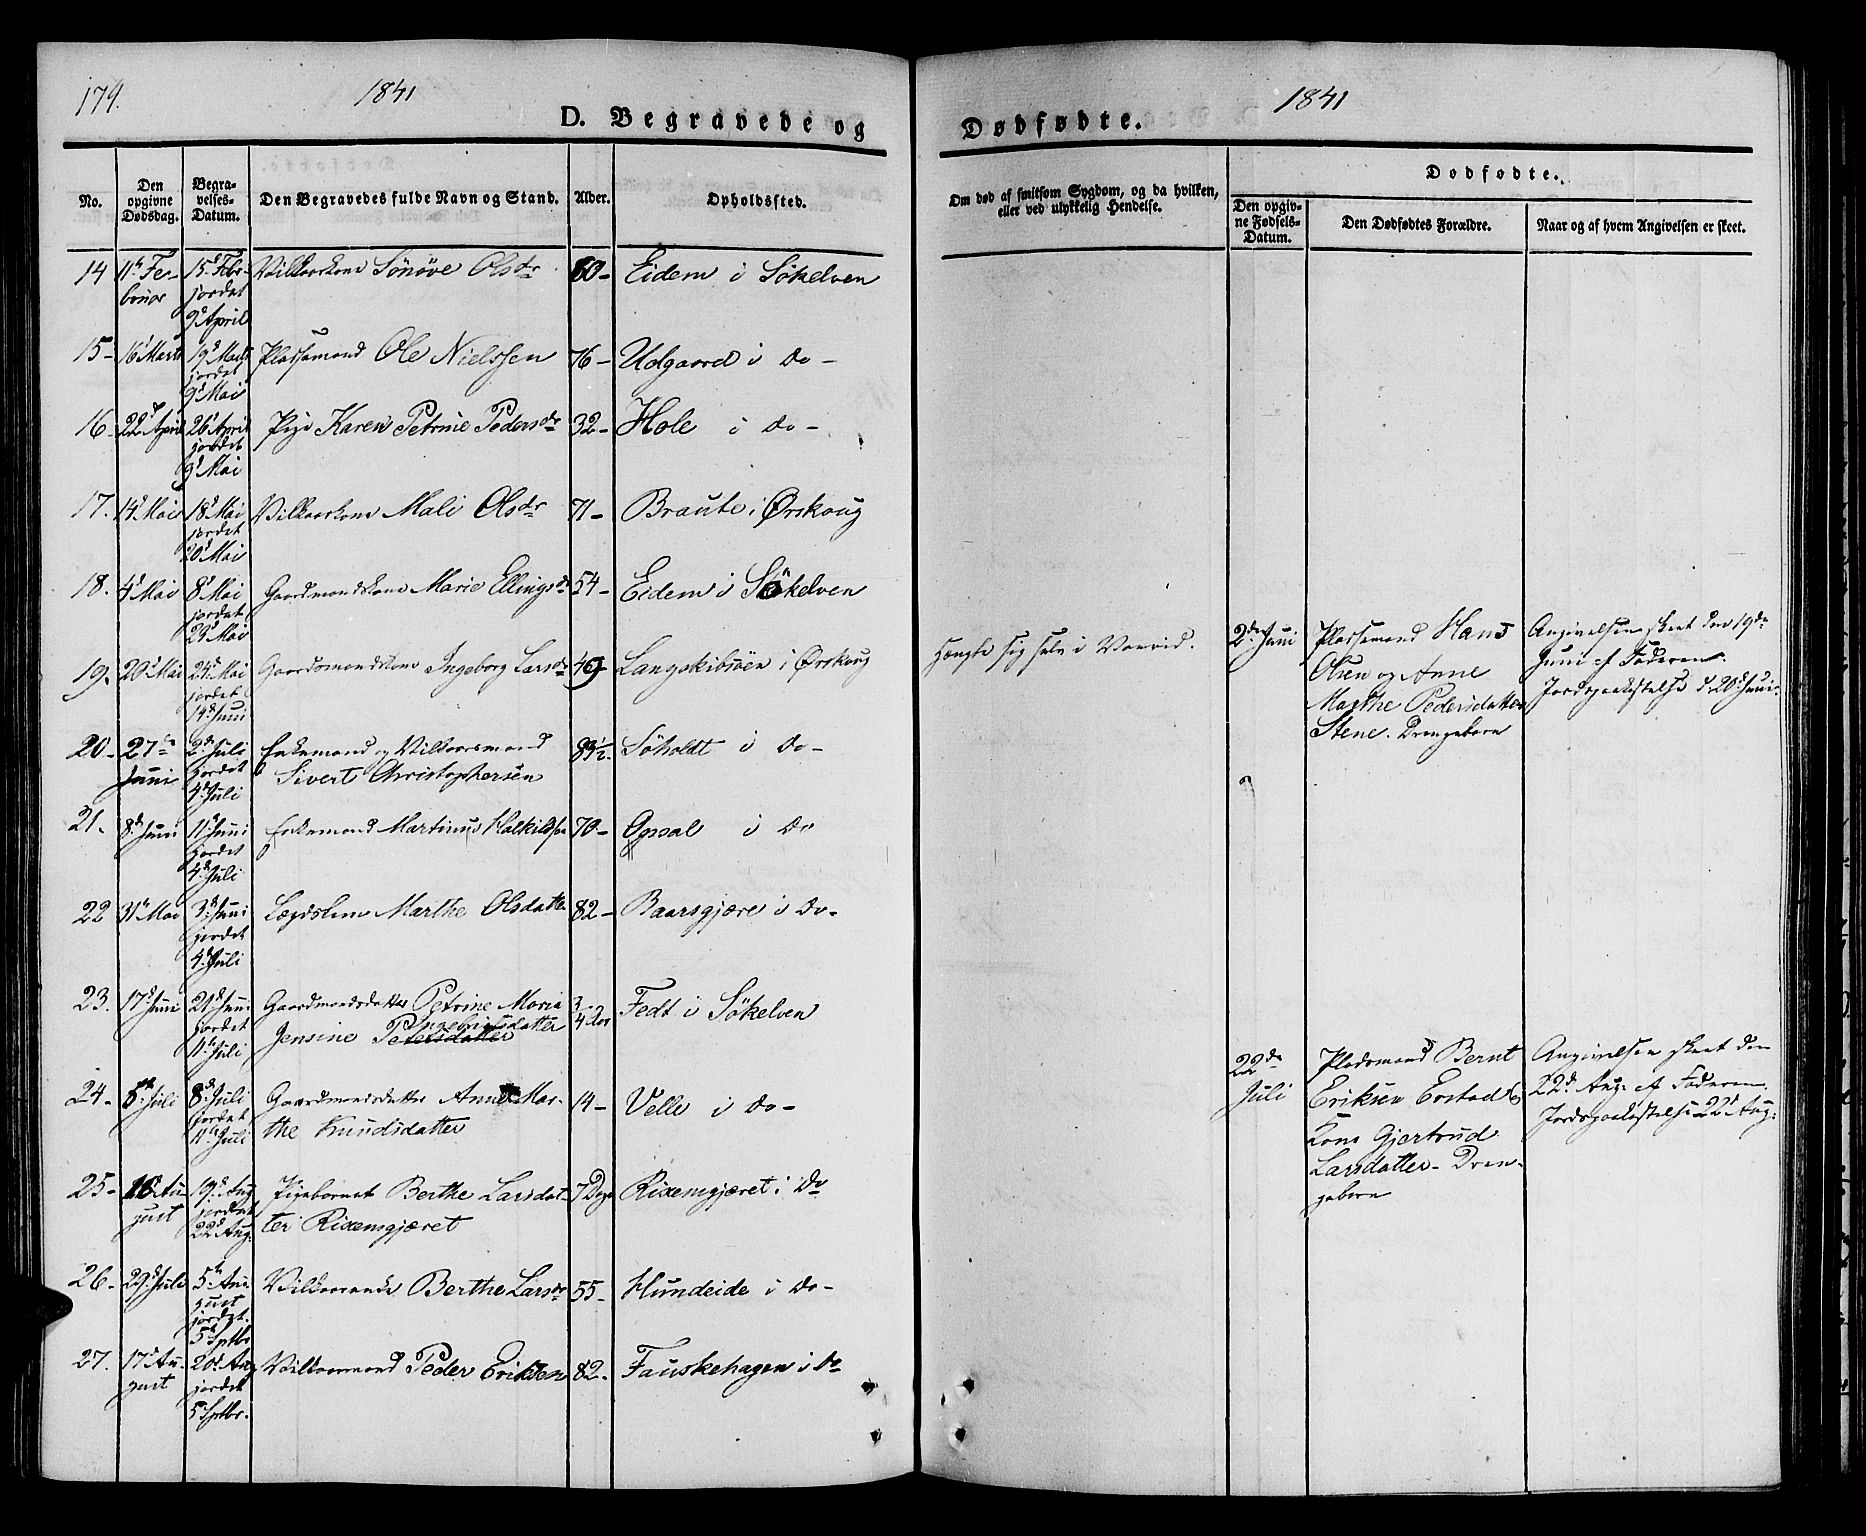 179.
1841
D. Begravede og
No.
Den opgivne Dødsdag.
Begravelses-Datum.
Den Begravedes fulde Navn og Stand.
Alder.
Opholdssted.
14 11te Februar 15d Febr jordet 9d April Vilkaarskone Sönöve Olsdr 80- Eidem i Sökelven
15- 16d Marts 19d Marts jordet 9d Mai Pladsemand Ole Nielssen 76- Udgaard i Do-
16- 22d April 26d April jordet 9d Mai Pige Karen Petrine Pedersdr 32- Hole i do-
17. 14d Mai 18d Mai jordet 20d Mai Vilkaarskone Mali Olsdr 71- Braute i Ørskoug
18. 4d Mai 8d Mai jordet 23d Mai Gaardmandskone Marie Ellingsdr 54- Eidem i Sökelven
19. 20d Mai 24d Mai jordet 14d Juni Gaardmandskone Ingeborg Larsdr 49 Langskibsöen i Ørskoug
20- 27de Juni 2d Juli jordet 4d Juli Enkemand og Vilkaarsmand Sivert Christophersen 83½. Söholdt i Do-
21- 8d Juni 11te Juni jordet 4d Juli Enkemand Martinus Halkildsen 70- Opsal i Do
22 31te Mai 3d Juni jordet 4d Juli Lægdslem Marthe Olsdatter 82- Baarsgjære i Do-
23. 17d Juni 21d Juni jordet 11te Juli Gaardmandsdatter Petrine Maria Jensine Petersdatter Ingebrigtsdatter 3/4 Aar Fedt i Sökelven
24- 5te Juli 8d Juli jordet 11te Juli Gaardmandsdatter Anne Marthe Knudsdatter 14- Velle i Do-
25- 16 August 19d Aug jordet 22d Aug: Pigebarnet Berthe Larsdatter Rixemsgjæret 7 Dage Rixemsgjæret i Do
26- 29d Juli 5te August jordet 5te Septbr Vilkaarsenke Berthe Larsdr 55- Hundeide i Do-
27. 17d August 20d Aug jordet 5te Septbr. Vilkaarsmand Peder Eriksen 82- Fauskehagen i Do
Dødfødte.
1841
Om død af smitsom Sygdom, og da hvilken,
eller ved ulykkelig Hendelse.
Dødfødte.
Den opgivne Fødsels-Datum.
Den Dødfødtes Forældre.
Naar og af hvem Angivelsen er skeet.
Hængte sig selv i Vanvid.
2den Juni
Pladsemand Hans
Olsen og Anne
Marthe Pedersdatter
Stene. Drengebarn
Angivelsen skeet den 19de
Juni af Faderen.
Jordspaakastelse d. 20d Juni.
22de
Juli
Pladsmand Bernt
Eriksen Erstad &
Kone Gjertrud
Larsdatter- Dren-
gebarn
Angivelsen skeet den
22d Aug: af Faderen.
Jordspaakastelse 22d Aug: